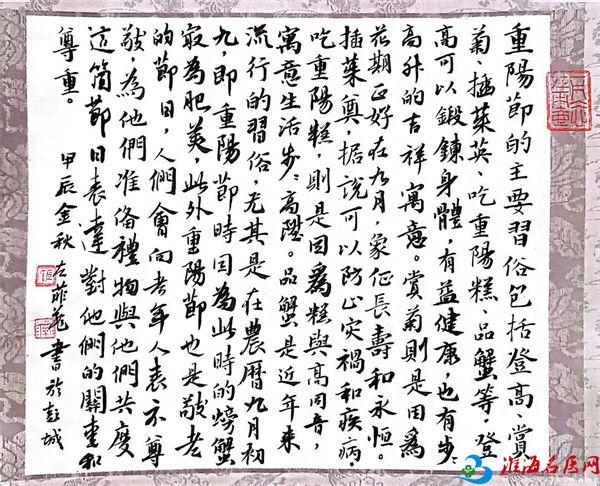 重陽節的主要習俗包括登高、賞
菊、插茱萸、吃重陽糕、品蟹等，登
高可以鍛鍊身體，有益健康，也有步步
高升的吉祥寓意。賞菊則是因為
花期正好在九月，象征長壽和永恒。
插茱萸，据說可以防止灾禍和疾病，
吃重陽糕，則是因為糕與高同音，
寓意生活步步高陞。品蟹是近年來
流行的習俗，尤其是在農曆九月初
九，即重陽節時因為此時的螃蟹
最為肥美，此外重陽節也是敬老
的節日，人們會向老年人表示尊
敬，為他們准备禮物與他們共度
這箇節日表達對他們的關愛和
尊重。
甲辰金秋 左菲 書於彭城
淮海名医网